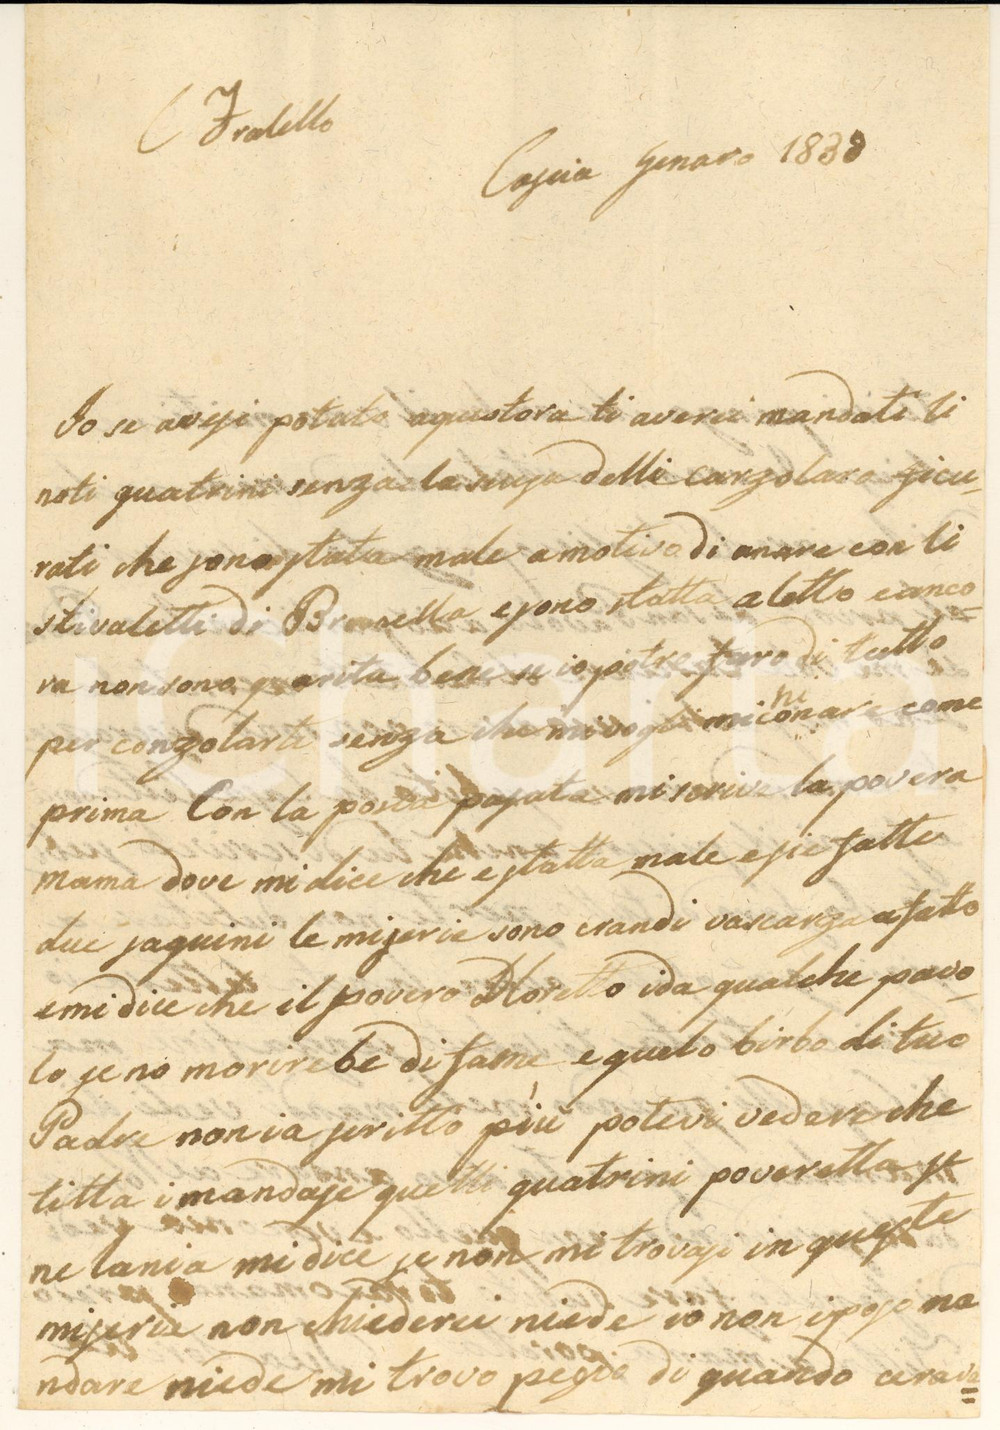 C Fratello
Cascia Genaro 1838
Io se avesi potuto aquestora ti averei mandati li
noti quatrini senza la scusa delli carzolara sicu-
rati che sono stata male amotivo di anare con li
stivaletti di Brunella esono statta aletto eanco-
ra non sono guarita bene se io potro faro di tutto
per conzolarti senza che mi vogli mi chonare come
prima Con la posta pasata mi scrive la povera
Mama dove mi dice che estatta male esie fatte
due saquini le miserie sono crandi vascarza afatto
emidice che il povero Moretto ida qualche pavo-
lo seno morirebe di fame equelo birbo di tuo
Padre non ia scritto più potevi vedere che
titta i mandase quelli quatrini poveretta se
ne lania mi dice se non mi trovasi in queste
miserie non chiederei niede io non iposo ma
ndare niede mi trovo pegio di quando cerava